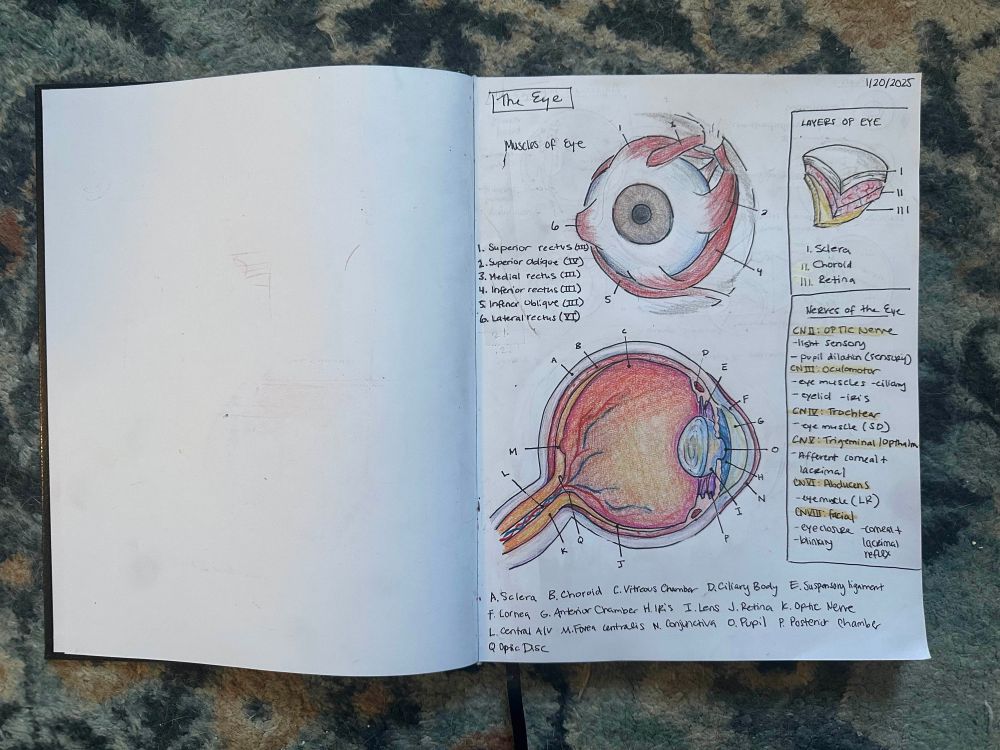 1/20/2025
The Eye
Muscles of Eye
1
2
1
2
4
5
6
1. Superior rectus (III)
2. Superior Oblique (IV)
3. Medial rectus (III)
4. Inferior rectus (III)
5 Inferior Oblique (III)
6. Lateral rectus (VI)
LAYERS OF EYE
I
II
III
I. Sclera
II. Choroid
III. Retina
Nerves of the Eye
CN II: OPTIC Nerve
- light sensory
- pupil dilation (sensory)
CN III: Oculomotor
- eye muscles - ciliary
- eyelid - iris
CN IV: Trochlear
- eye muscle (SO)
CN V: Trigeminal/Opthalm
- Afferent corneal +
lacrimal
CN VI: Abducens
- eye muscle (LR)
CN VII: Facial
- eye closure - corneal +
- blinking lacrimal
reflex
A
B
C
D
E
F
G
O
H
N
I
P
J
Q
K
L
M
A. Sclera B. Choroid C. Vitreous Chamber D. Ciliary Body E. Suspensory ligament
F. Cornea G. Anterior Chamber H. Iris I. Lens J. Retina K. Optic Nerve
L. Central A/V M. Fovea Centralis N. Conjunctiva O. Pupil P. Posterior Chamber
Q Optic Disc